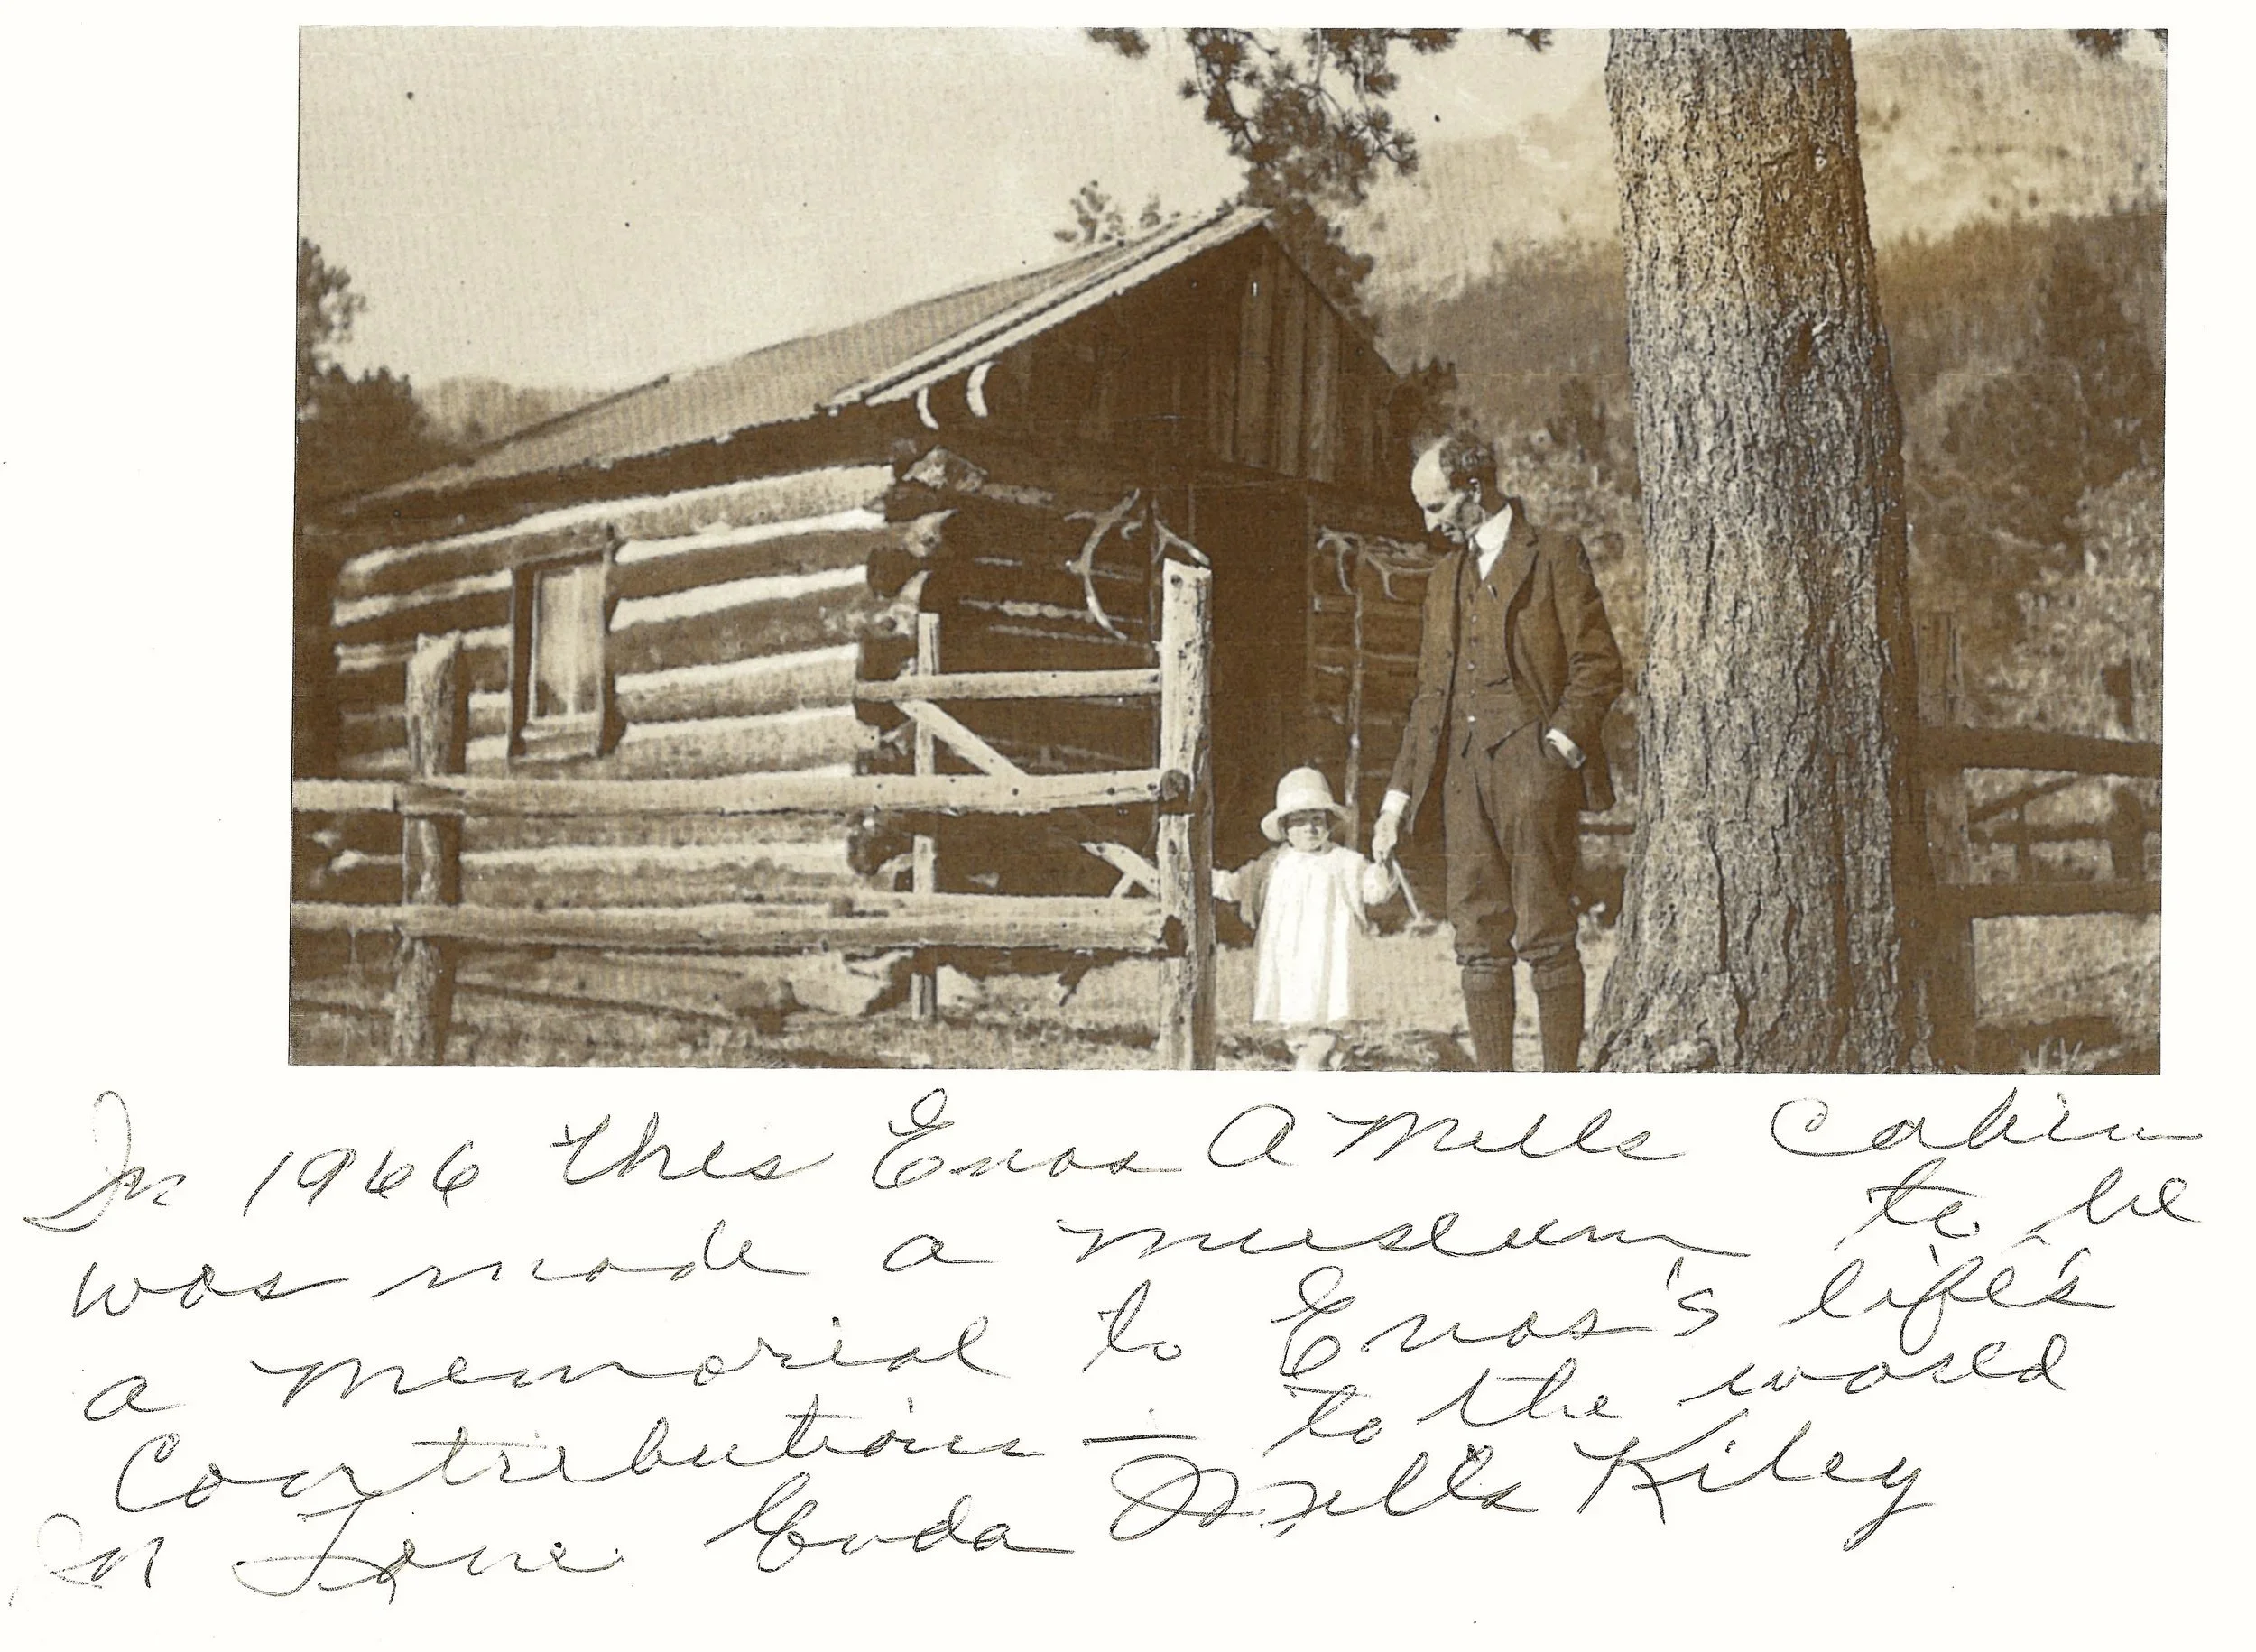 In 1966 this Enos A Mills Cabin
was made a museum to be
a memorial to Enos's life's
Contributions — to the world
In Love Enda Mills Kiley